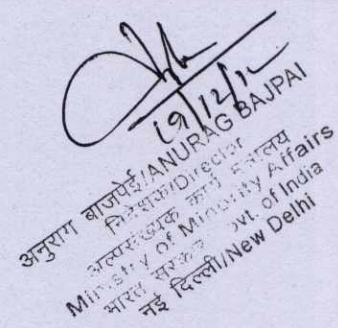 19/12/12
अनुराग बाजपेई/ANURAG BAJPAI
निदेशक/Director
अल्पसंख्यक कार्य मंत्रालय
Ministry of Minority Affairs
भारत सरकार Govt. of India
नई दिल्ली/New Delhi